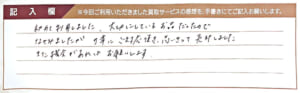 記入欄 ※今日ご利用いただきました買取サービスの感想を、手書きにてご記入お願いします。
初めて利用しました。大切にしているお品だったので
なやみましたが 丁寧にご対応頂き、思いきって売却しました
また機会があればお願いします。